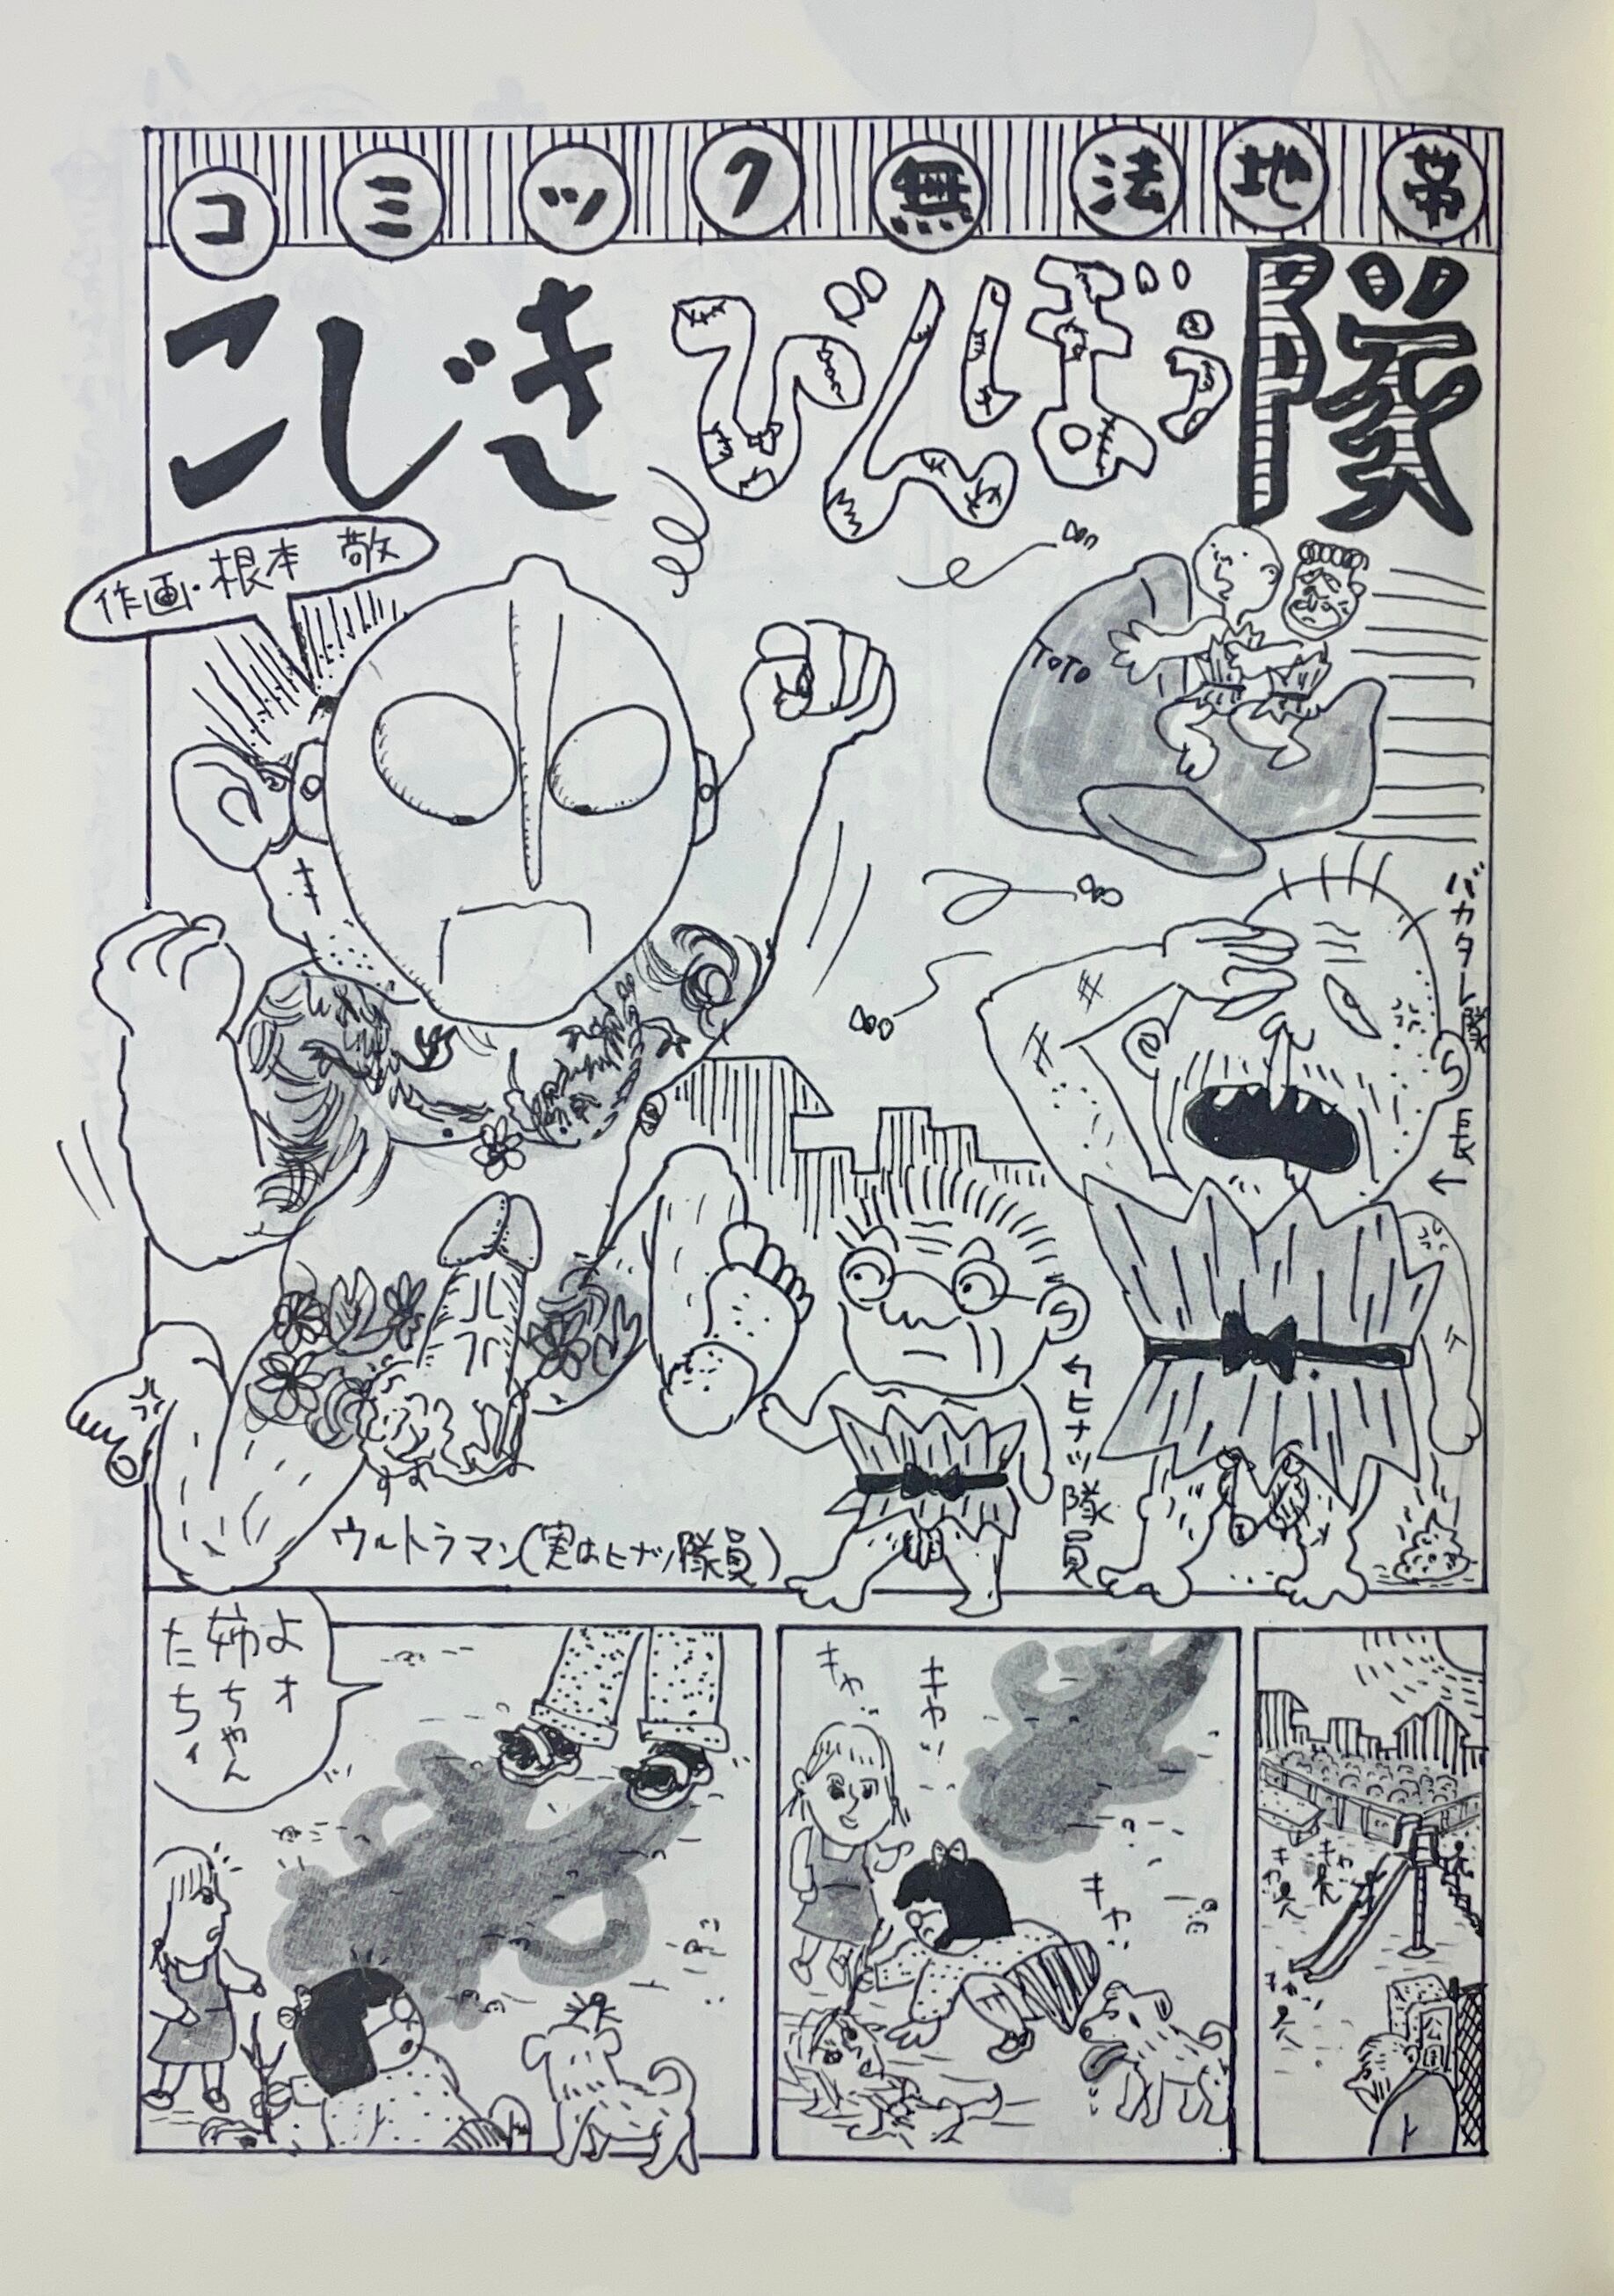 コミック無法地帯
こじきびんぼう隊
作画・根本 敬
TOTO
バカタレ隊長←
←ヒナツ隊員
ウルトラマン(実はヒナツ隊員)
キャ
キャ
キャ
キャ
キャ
公園
よオ
姉ちゃん
たちィ